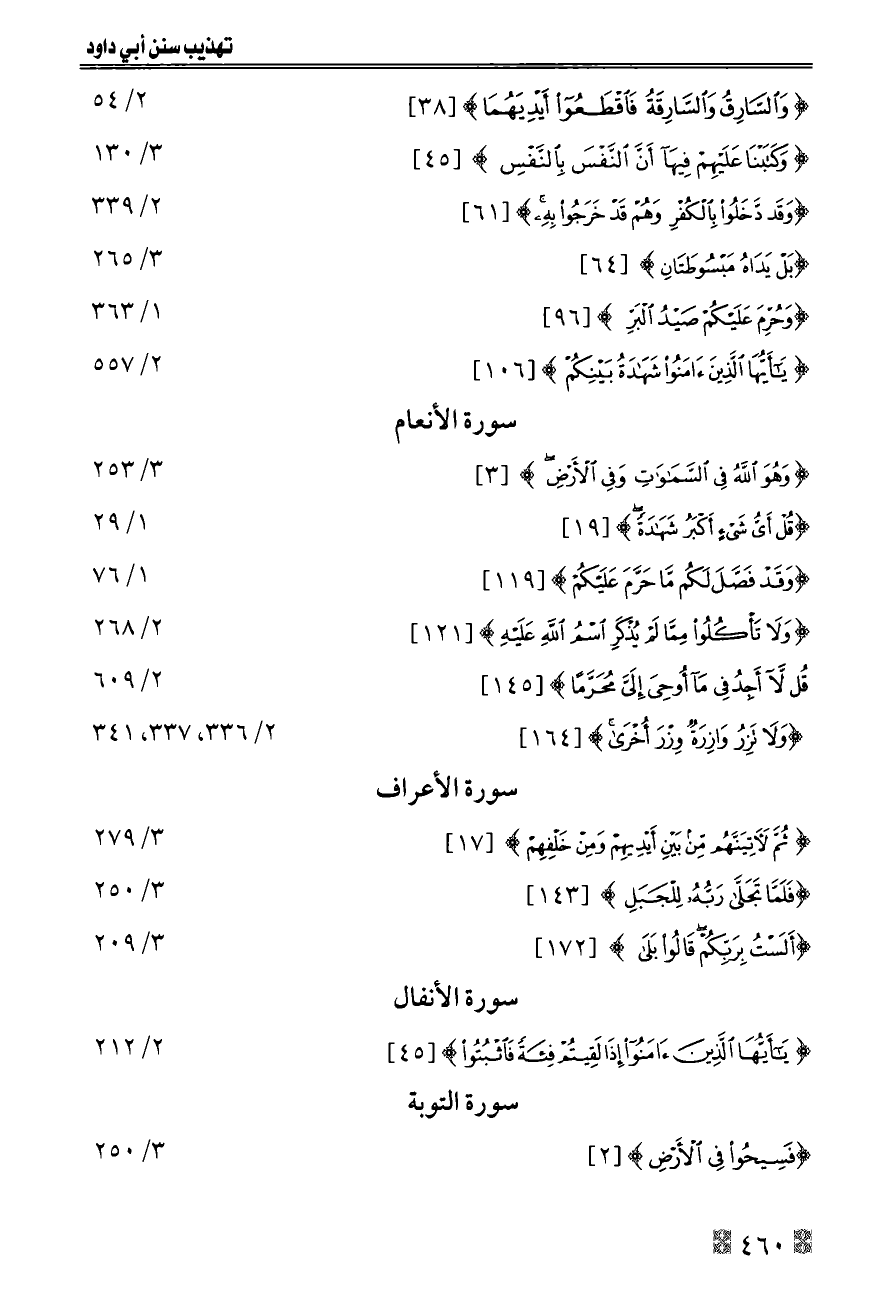 تهذيب سنن أبي داود
﴿ وَٱلسَّارِقُ وَٱلسَّارِقَةُ فَٱقْطَعُوٓا۟ أَيْدِيَهُمَا ﴾ [٣٨] ٢/ ٥٤
﴿ وَكَتَبْنَا عَلَيْهِمْ فِيهَآ أَنَّ ٱلنَّفْسَ بِٱلنَّفْسِ ﴾ [٤٥] ٣/ ١٣٠
﴿وَقَد دَّخَلُوا۟ بِٱلْكُفْرِ وَهُمْ قَدْ خَرَجُوا۟ بِهِۦۚ﴾ [٦١] ٢/ ٣٣٩
﴿بَلْ يَدَاهُ مَبْسُوطَتَانِ ﴾ [٦٤] ٣/ ٢٦٥
﴿وَحُرِّمَ عَلَيْكُمْ صَيْدُ ٱلْبَرِّ ﴾ [٩٦] ١/ ٣٦٣
﴿ يَٰٓأَيُّهَا ٱلَّذِينَ ءَامَنُوا۟ شَهَٰدَةُ بَيْنِكُمْ ﴾ [١٠٦] ٢/ ٥٥٧
سورة الأنعام
﴿ وَهُوَ ٱللَّهُ فِى ٱلسَّمَٰوَٰتِ وَفِى ٱلْأَرْضِۖ ﴾ [٣] ٣/ ٢٥٣
﴿قُلْ أَىُّ شَىْءٍ أَكْبَرُ شَهَٰدَةًۖ﴾ [١٩] ١/ ٢٩
﴿وَقَدْ فَصَّلَ لَكُم مَّا حَرَّمَ عَلَيْكُمْ ﴾ [١١٩] ١/ ٧٦
﴿وَلَا تَأْكُلُوا۟ مِمَّا لَمْ يُذْكَرِ ٱسْمُ ٱللَّهِ عَلَيْهِ ﴾ [١٢١] ٢/ ٢٦٨
قُل لَّآ أَجِدُ فِى مَآ أُوحِىَ إِلَىَّ مُحَرَّمًا ﴾ [١٤٥] ٢/ ٦٠٩
﴿وَلَا تَزِرُ وَازِرَةٌ وِزْرَ أُخْرَىٰۚ﴾ [١٦٤] ٢/ ٣٣٦، ٣٣٧، ٣٤١
سورة الأعراف
﴿ ثُمَّ لَءَاتِيَنَّهُم مِّنۢ بَيْنِ أَيْدِيهِمْ وَمِنْ خَلْفِهِمْ ﴾ [١٧] ٣/ ٢٧٩
﴿فَلَمَّا تَجَلَّىٰ رَبُّهُۥ لِلْجَبَلِ ﴾ [١٤٣] ٣/ ٢٥٠
﴿أَلَسْتُ بِرَبِّكُمْۖ قَالُوا۟ بَلَىٰ ﴾ [١٧٢] ٣/ ٢٠٩
سورة الأنفال
﴿ يَٰٓأَيُّهَا ٱلَّذِينَ ءَامَنُوٓا۟ إِذَا لَقِيتُمْ فِئَةً فَٱثْبُتُوا۟ ﴾ [٤٥] ٢/ ٢١٢
سورة التوبة
﴿فَسِيحُوا۟ فِى ٱلْأَرْضِ ﴾ [٢] ٣/ ٢٥٠
٤٦٠